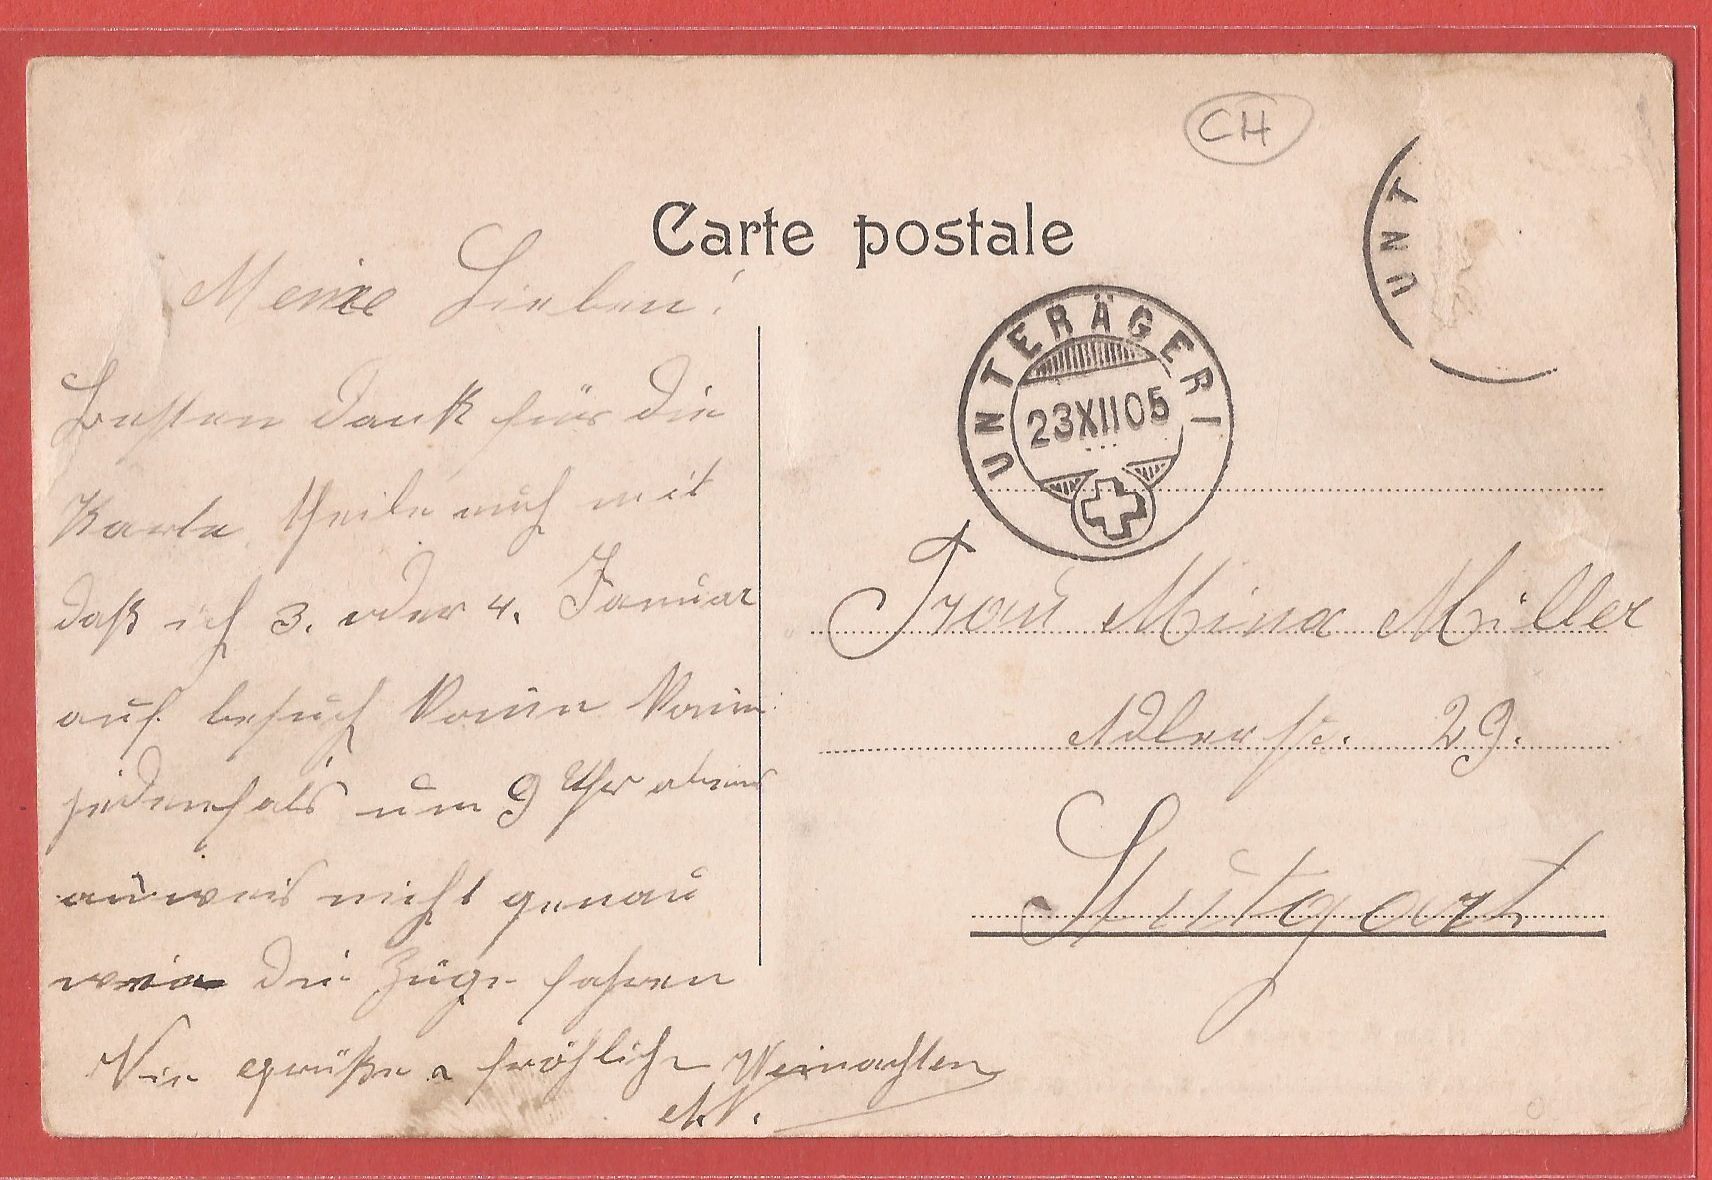 CH
Carte postale
UNT
UNTERÄGERI
23XII05
Meine Lieben!
Besten Dank für die
Karte, theile euch mit
daß ich 3. oder 4. Januar
auf besuch komme komm
jedenfals um 9 Uhr abens
an weis nicht genau
wie die Züge fahren
Viele grüße & fröhliche Weinachten
Frau Mina Miller
Adlerst. 29.
Stutgart